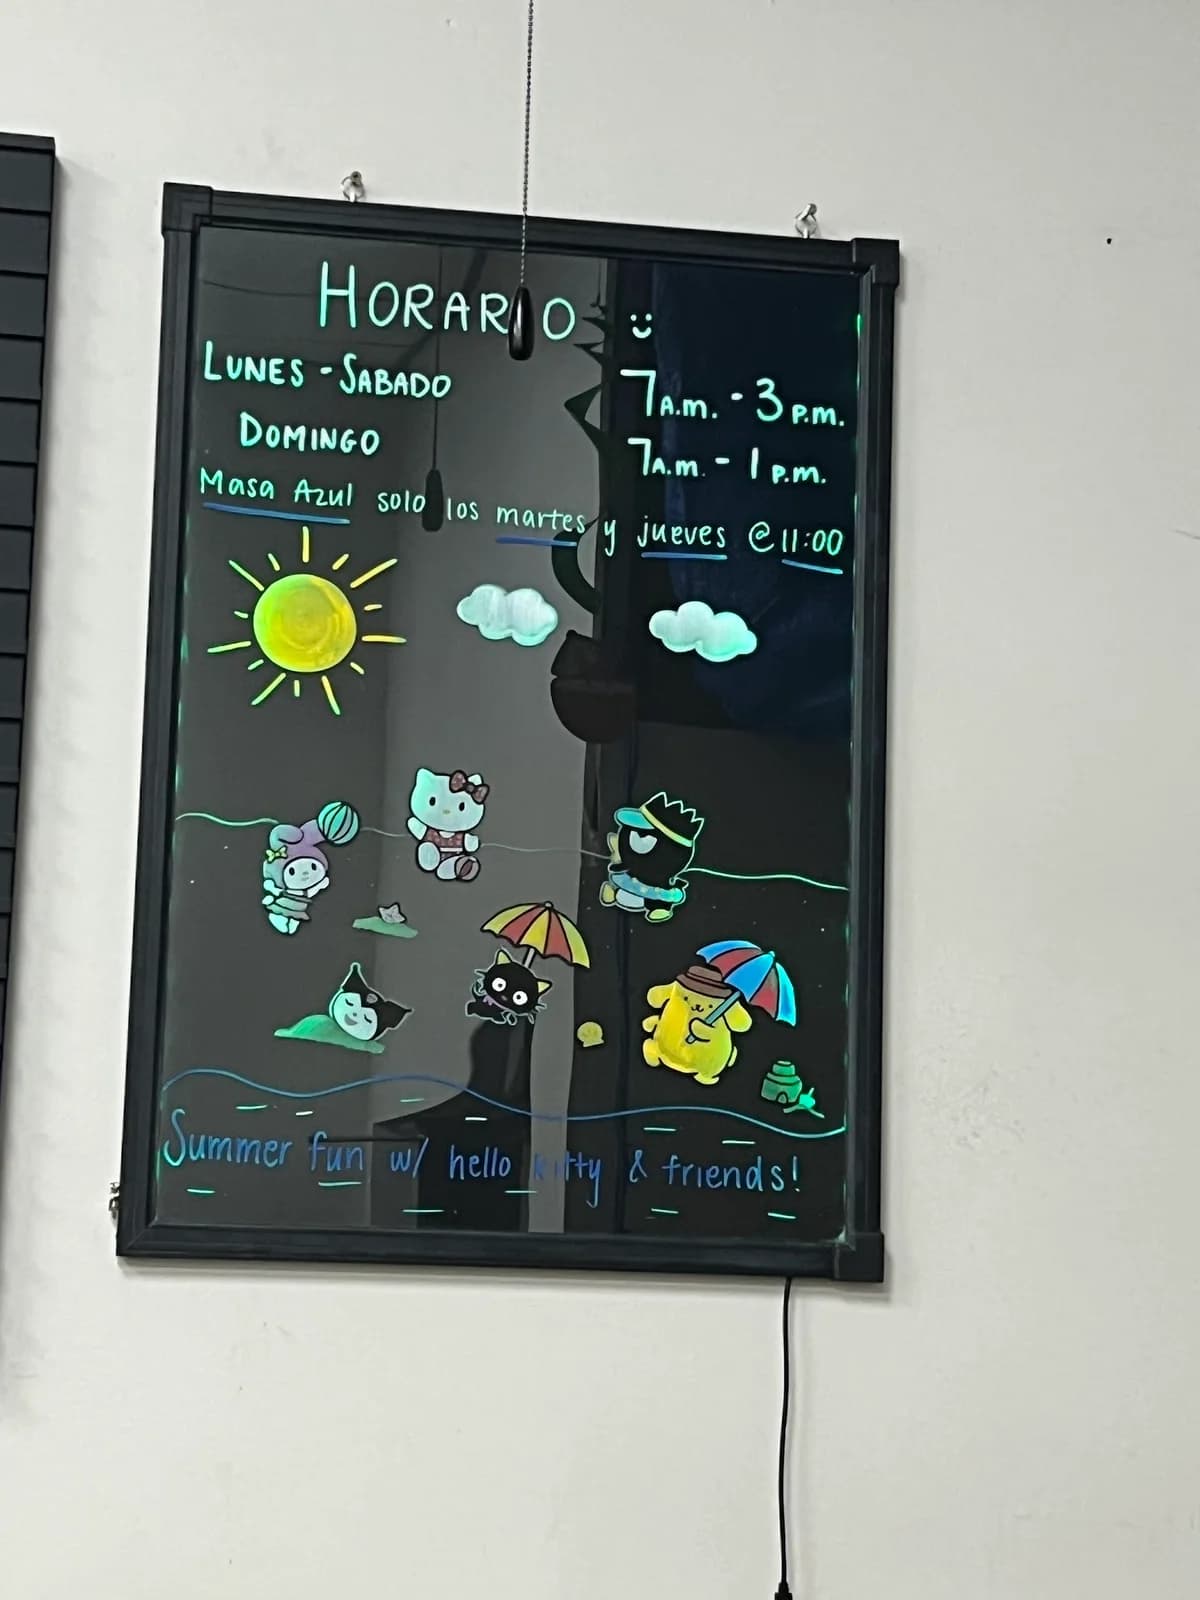 HORARIO
LUNES - SABADO 7 A.m. - 3 P.m.
DOMINGO 7 A.m. - 1 P.m.
Masa Azul solo los martes y jueves @ 11:00
Summer fun w/ hello kitty & friends!